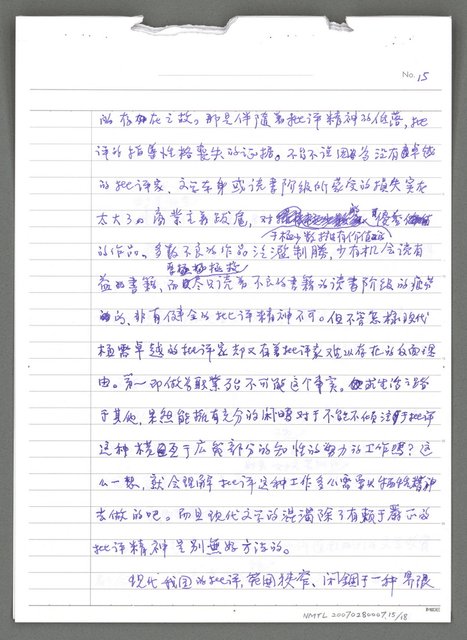 No. 15
所存在之故。那是伴随着批评精神的低落,批
评的指导性格丧失的证据。不得不说因为没有卓越
的批评家、文学本身或读书阶级所蒙受的损失实在
太大了。商业主义跋扈,对 优秀
于极少数拥有价值的
的作品、多数不良的作品泛滥制胜,少有机会读有
益的书籍,而只读着不良的书籍的读书阶级的疲劳
的、非有健全的批评精神不可。但不管怎样现代
极需卓越的批评家却又有着批评家难以存在的反面理
由。第一那做为职业殆不可能这个事实。求生活之路
于其他,果然能拥有充分的闲暇对于不能不倾注于批评
这种极至于广范部分的知性的努力的工作吗?这
么一想,就会理解批评这种工作多么需要以牺牲精神
去做的吧。而且现代文学的混浊除了有赖于严正的
批评精神是别無好方法的。
现代我国的批评,范围狭窄、闭锢于一种界限
NMTL 20070280007 15/18